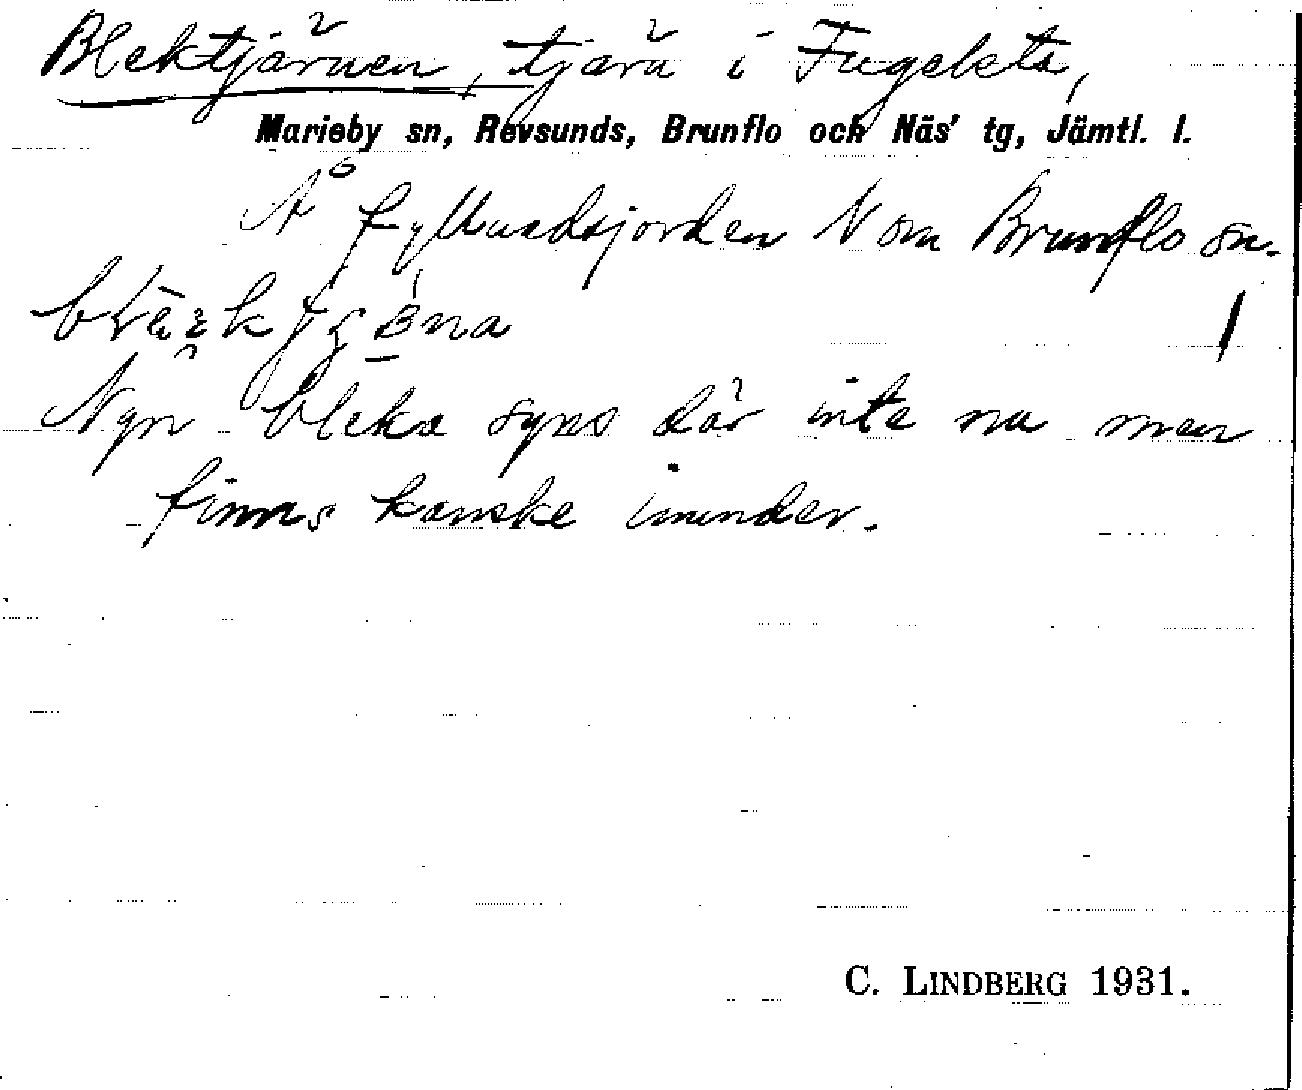 Blektjärnen, tjärn i Fugelsta,
Marieby sn, Revsunds, Brunflo och Näs' tg, Jämtl. l.
Å fyllnadsjorden N om Brunflo sn.
Ngn bleka syns där inte nu men
finns kanske inunder.
C. LINDBERG 1931.